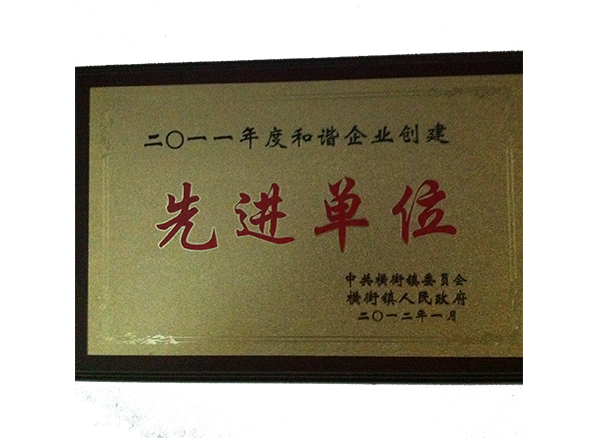 二〇一一年度和谐企业创建
先进单位
中共横街镇委员会
横街镇人民政府
二〇一二年一月